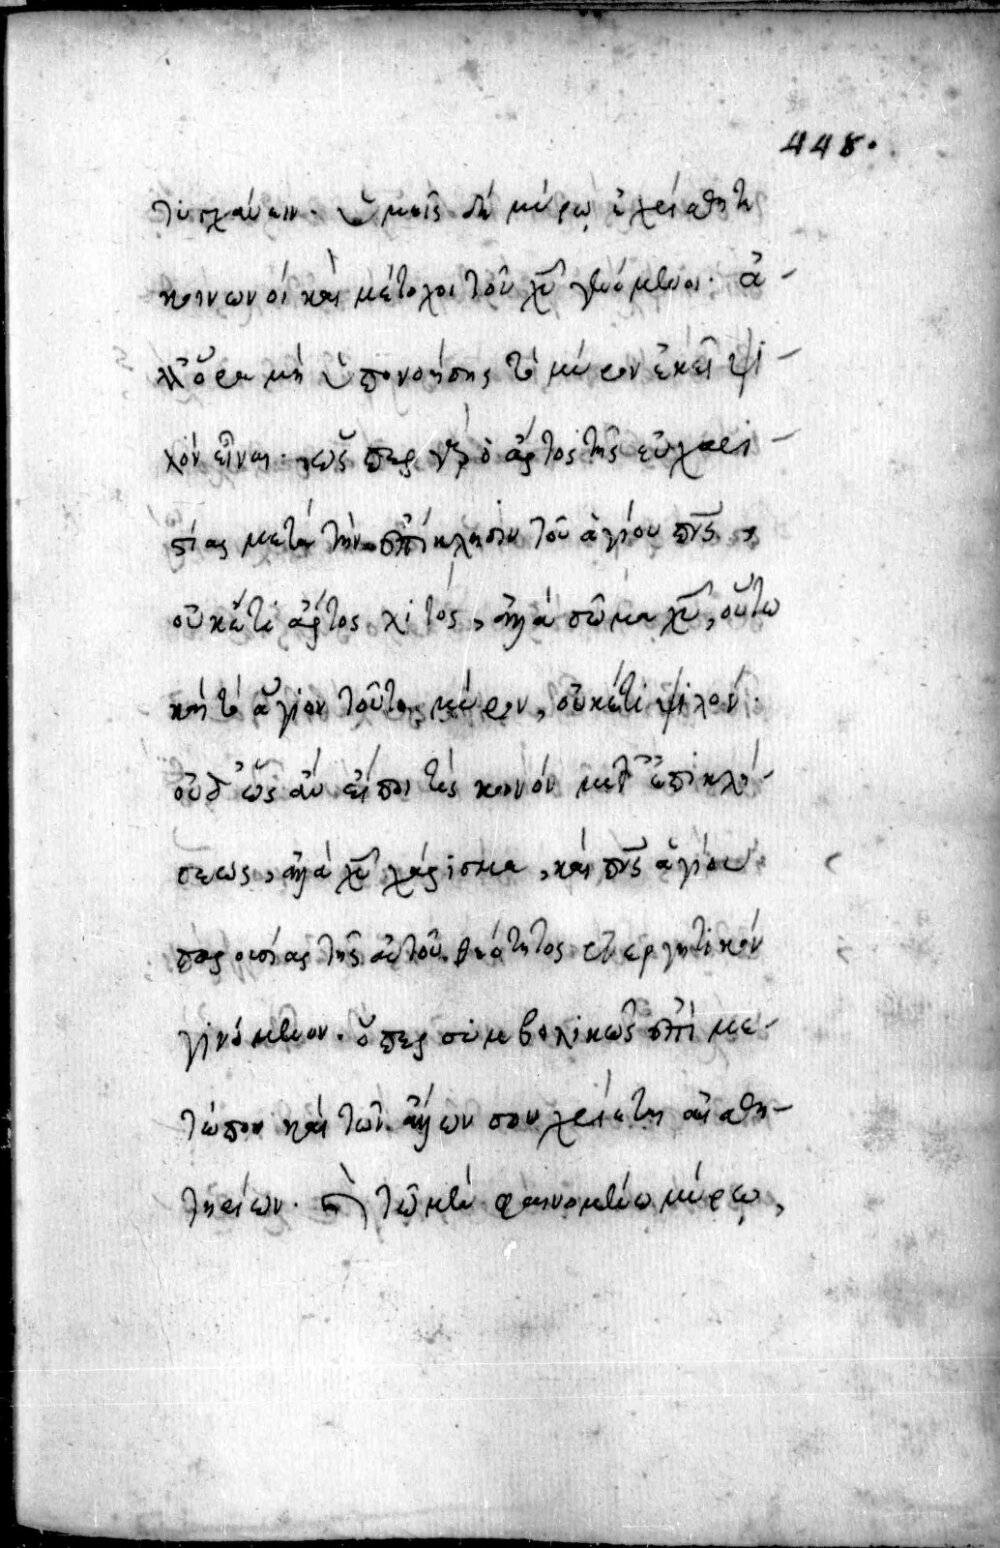 448.
τυγχάνειν. ὑμεῖς δὲ μύρῳ ἐχρίσθητε
κοινωνοὶ καὶ μέτοχοι τοῦ χυ γενόμενοι. ἀ-
λλ' ὅρα μὴ ὑπονοήσης τὸ μύρον ἐκεῖ ψι-
χόν εἶναι. ὥσπερ γὰρ ὁ ἄρτος τῆς εὐχαρι-
στίας μετὰ τὴν ἐπίκλησιν τοῦ ἁγίου πνς,
οὐκέτι ἄρτος λιτός, ἀλλὰ σῶμα χυ, οὕτω
καὶ τὸ ἅγιον τοῦτο μύρον, οὐκέτι ψιλόν.
οὐδ' ὡς ἂν εἴποι τις κοινόν μετ' ἐπικλή-
σεως, ἀλλὰ χυ χάρισμα, καὶ πνς ἁγίου
παρουσίας τῆς αὐτοῦ θεότητος ἐνεργητικόν
γινόμενον. ὅπερ συμβολικῶς ἐπὶ με-
τώπου καὶ τῶν ἄλλων σου χρίεται αἰσθη-
τηρίων. καὶ τῷ μὲν φαινομένῳ μύρῳ,